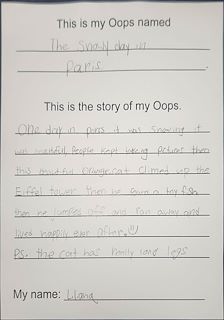 This is my Oops named
The Snowy day in
Paris
This is the story of my Oops.
One day in paris it was snowing it
people kept taking pictures then
this Orange cat climed up the
Eiffel tower then he a toy fish
then he jumped off and ran away and
lived happily ever after
PS. the cat has really long legs
My name: Liana